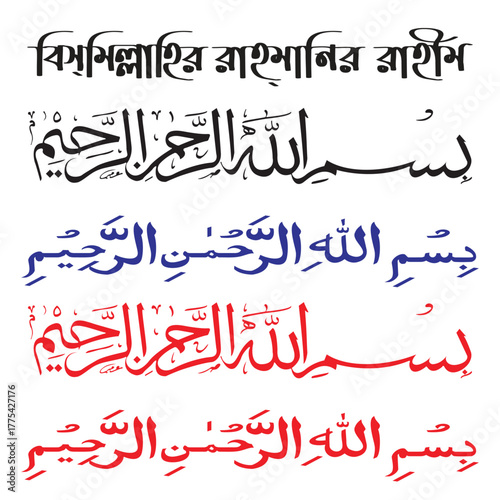 বিস্মিল্লাহির রাহ্মানির রাহীম
بسم الله الرحمن الرحيم
بِسْمِ اللهِ الرَّحْمٰنِ الرَّحِيْمِ
بسم الله الرحمن الرحيم
بِسْمِ اللهِ الرَّحْمٰنِ الرَّحِيْمِ
Adobe Stock | #1775427176